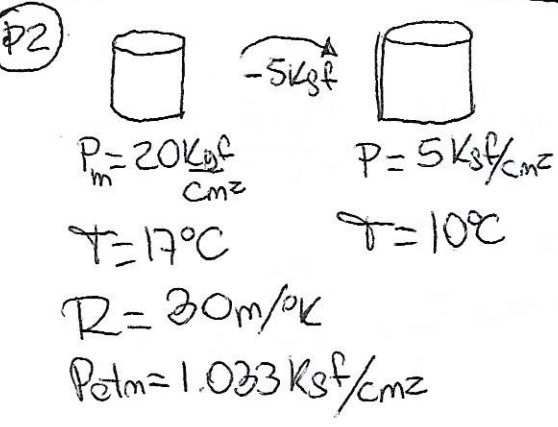 P2
-5Kgf
Pm=20Kgf/cm² P=5Kgf/cm²
T=17°C T=10°C
R=30m/°K
Patm=1.033Kgf/cm²